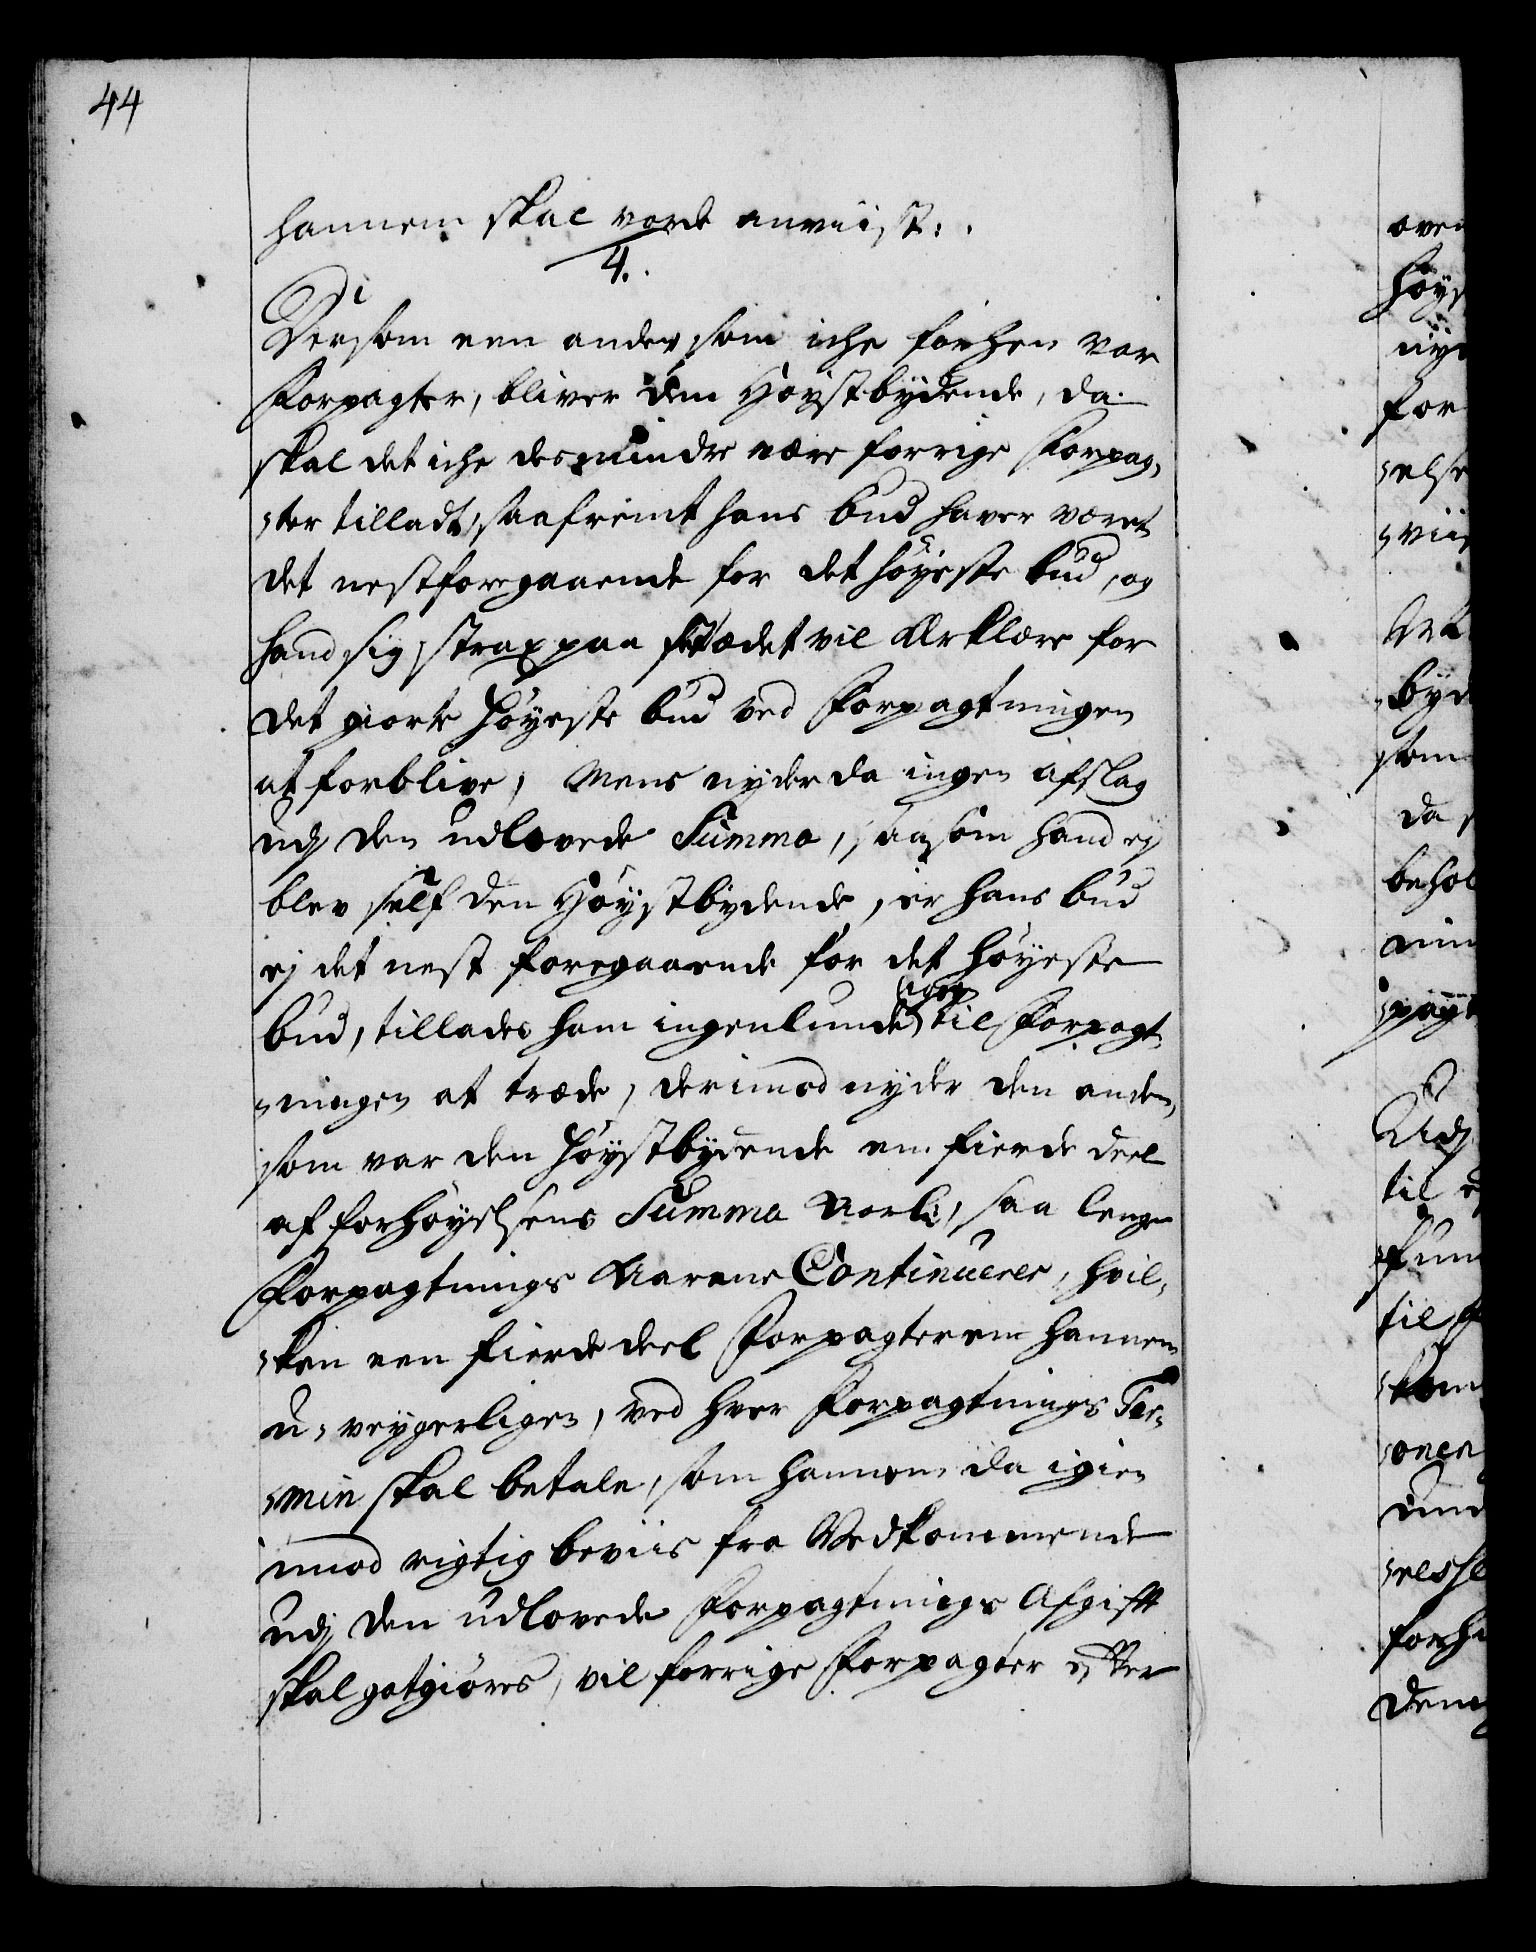 44
hannem skal vorde anviist:.
4.
Dersom een anden som iche forhen var
Forpagter, bliver dem Høystbydende, da
skal det iche desmindre være forrige Forpag-
-ter tilladt, saafremt hans bud haver været
det nestforegaaende for det høyeste bud, og
hand sig strax paa stædet vil Erklære for
det giorte høyeste bud ved Forpagtningen
at forblive, Mens nyder da ingen afslag
udj den udlovede Summa, saasom hand ej
blev self den Høystbydende, er hans bud
ej det nest foregaaende for det høyeste
bud, tillades ham ingenlunde igien til Forpagt-
-ningen at træde, derimod nyder den anden,
som var den høystbydende en fierde deel
af forhøyelsens Summa Aarli, saa lenge
Forpagtnings Aarene Continuerer, hvil-
-ken een fierde deel Forpagteren hannem
u-veygerligen, ved hver Forpagtnings Ter-
-min skal betale, som hannem da igien
imod rigtig beviis fra Vedkommende
udj den udlovede Forpagtnings Afgifft
skal gotgiøres, vil forrige Forpagter efter
oven
høys
nyd
for
-else
-viis
byd
som
da
behol
til
til
-onen
und
forhe